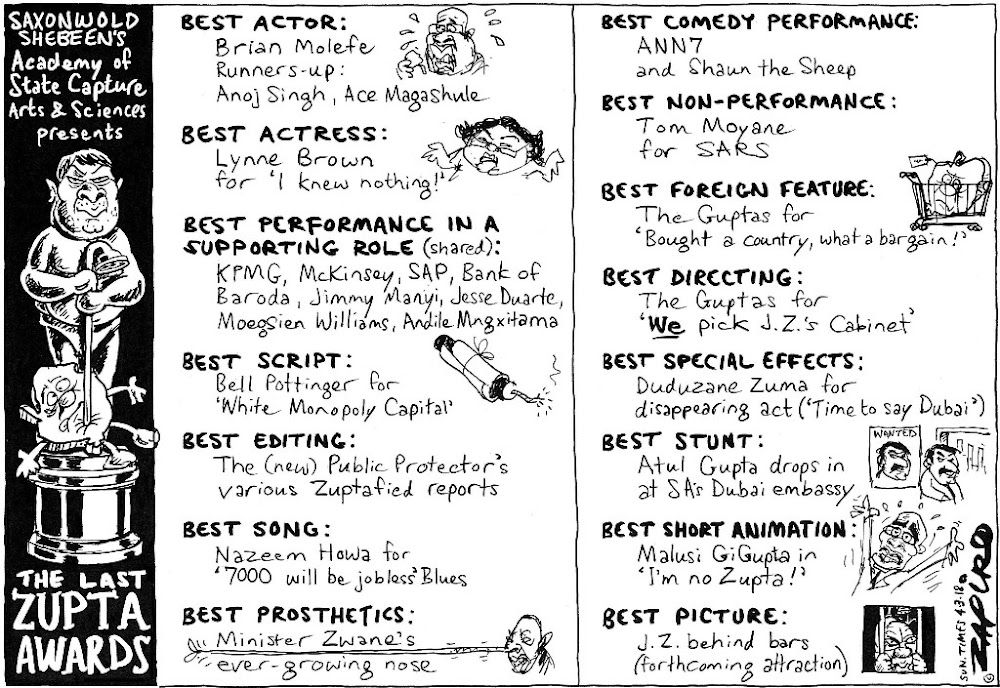 SAXONWOLD
SHEBEEN'S
Academy of
State Capture
Arts & Sciences
presents
THE LAST
'ZUPTA
AWARDS
BEST ACTOR:
Brian Molefe
Runners-up:
Anoj Singh, Ace Magashule
BEST ACTRESS:
Lynne Brown
for 'I knew nothing!'
BEST PERFORMANCE IN A
SUPPORTING ROLE (shared):
KPMG, McKinsey, SAP, Bank of
Baroda, Jimmy Manyi, Jesse Duarte,
Moegsien Williams, Andile Mngxitama
BEST SCRIPT:
Bell Pottinger for
'White Monopoly Capital'
BEST EDITING:
The (new) Public Protector's
various Zuptafied reports
BEST SONG:
Nazeem Howa for
'7000 will be jobless' Blues
BEST PROSTHETICS:
Minister Zwane's
ever-growing nose
BEST COMEDY PERFORMANCE:
ANN7
and Shaun the Sheep
BEST NON-PERFORMANCE:
Tom Moyane
for SARS
BEST FOREIGN FEATURE:
The Guptas for
'Bought a country, what a bargain!'
BEST DIRECTING:
The Guptas for
'We pick J.Z.'s Cabinet'
BEST SPECIAL EFFECTS:
Duduzane Zuma for
disappearing act ('Time to say Dubai')
BEST STUNT:
Atul Gupta drops in
at SA's Dubai embassy
WANTED
BEST SHORT ANIMATION:
Malusi GiGupta in
'I'm no Zupta!'
BEST PICTURE:
J.Z. behind bars
(forthcoming attraction)
SUN. TIMES 4-3-18
© ZAPIRO